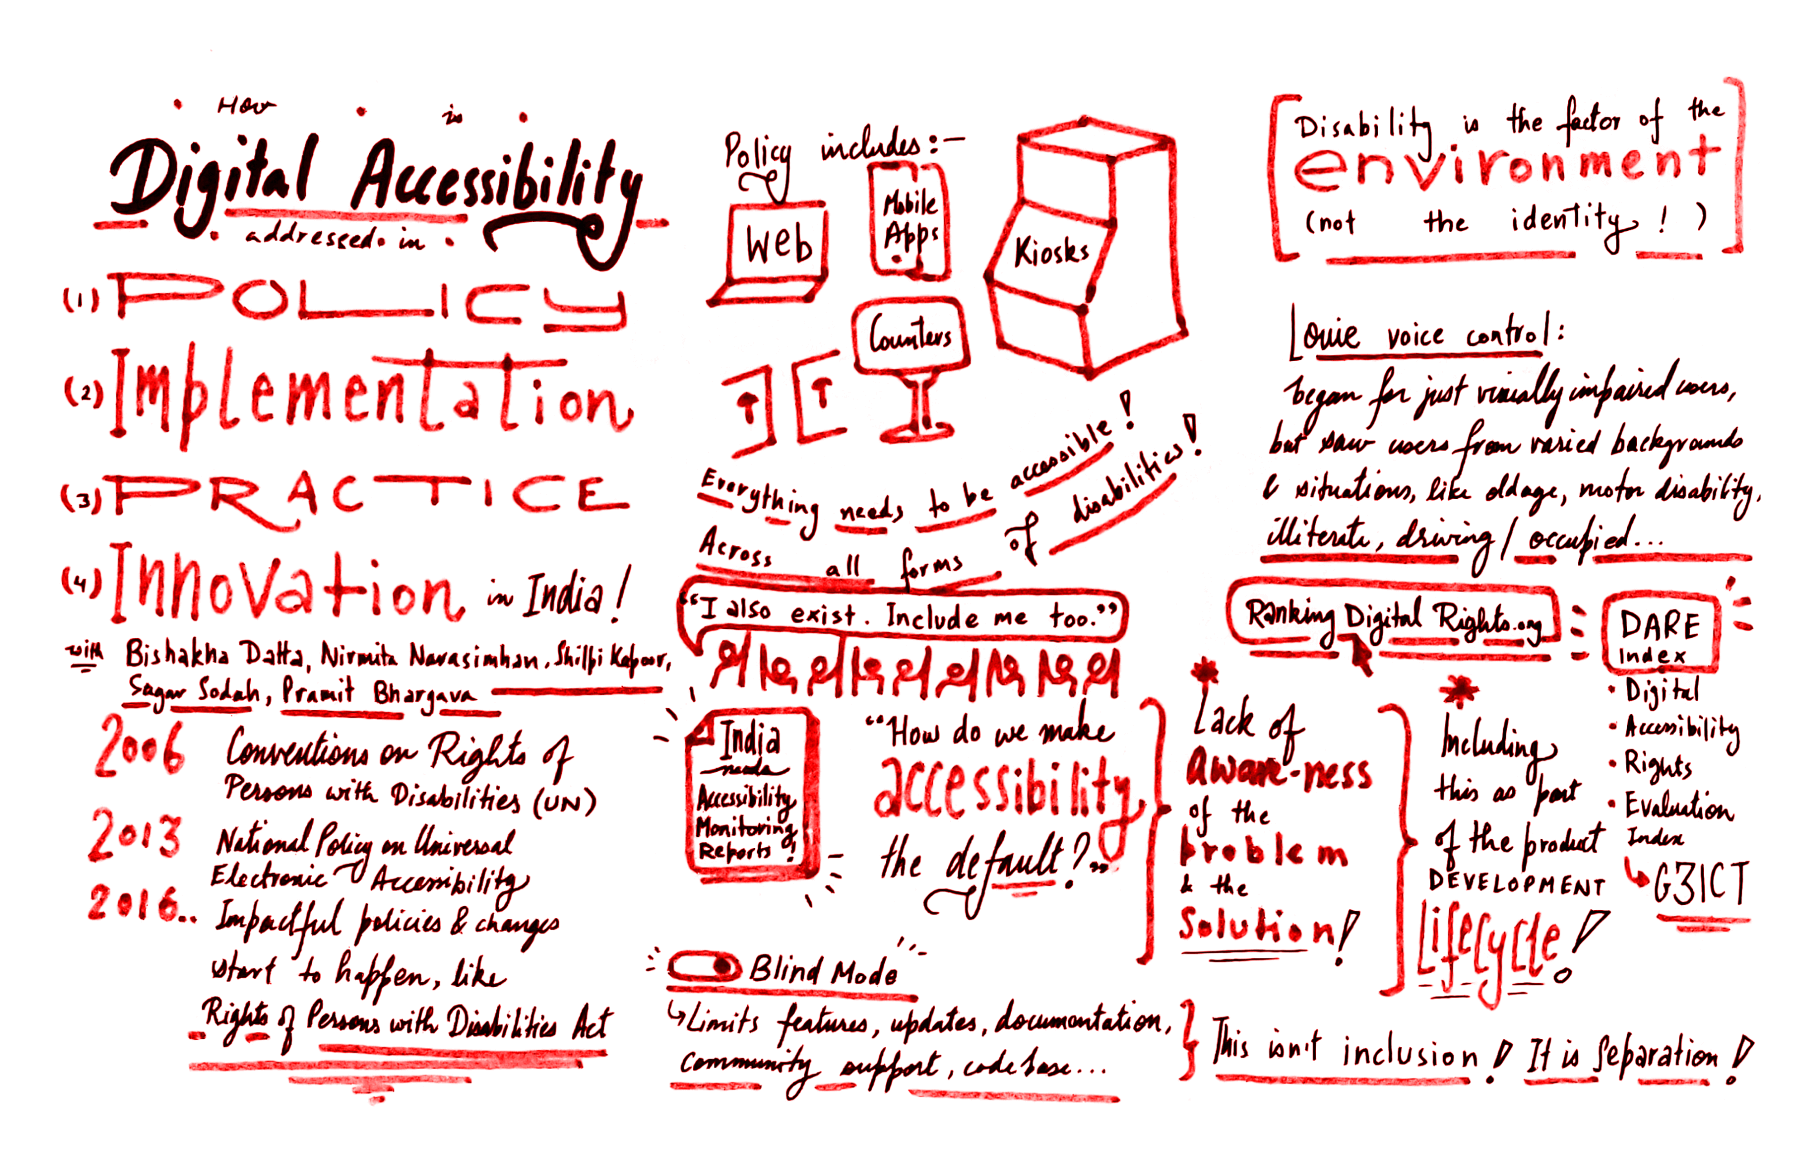 How is
Digital Accessibility
addressed in
(1) POLICY
(2) Implementation
(3) PRACTICE
(4) Innovation in India!
with Bishakha Datta, Nirmita Narasimhan, Shilpi Kapoor,
Sagar Sodah, Pramit Bhargava
2006 Conventions on Rights of
Persons with Disabilities (UN)
2013 National Policy on Universal
Electronic Accessibility
2016.. Impactful policies & changes
start to happen, like
Rights of Persons with Disabilities Act
Policy includes:-
Web
Mobile
Apps
Kiosks
Counters
Everything needs to be accessible!
Across all forms of disabilities!
"I also exist. Include me too."
India
needs
Accessibility
Monitoring
Reports!
"How do we make
accessibility
the default?"
Lack of
aware-ness
of the
problem
& the
solution!
Including
this as part
of the product
DEVELOPMENT
Lifecycle!
Blind Mode
Limits features, updates, documentation,
community support, codebase...
This isn't inclusion! It is Separation!
Disability is the factor of the
environment
(not the identity!)
Louie voice control:
began for just visually impaired users,
but saw users from varied backgrounds
& situations, like oldage, motor disability,
illiterate, driving/occupied...
Ranking Digital Rights.org
DARE
Index
• Digital
• Accessibility
• Rights
• Evaluation
Index
G3ICT